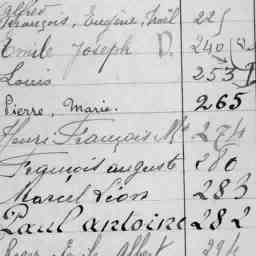 François, Eugène, Noël 225
Emile Joseph D. 240
Louis 253
Pierre, Marie. 265
Henri François Mie 274
François auguste 280
Marcel Léon 283
Paul antoine 282
Albert 294